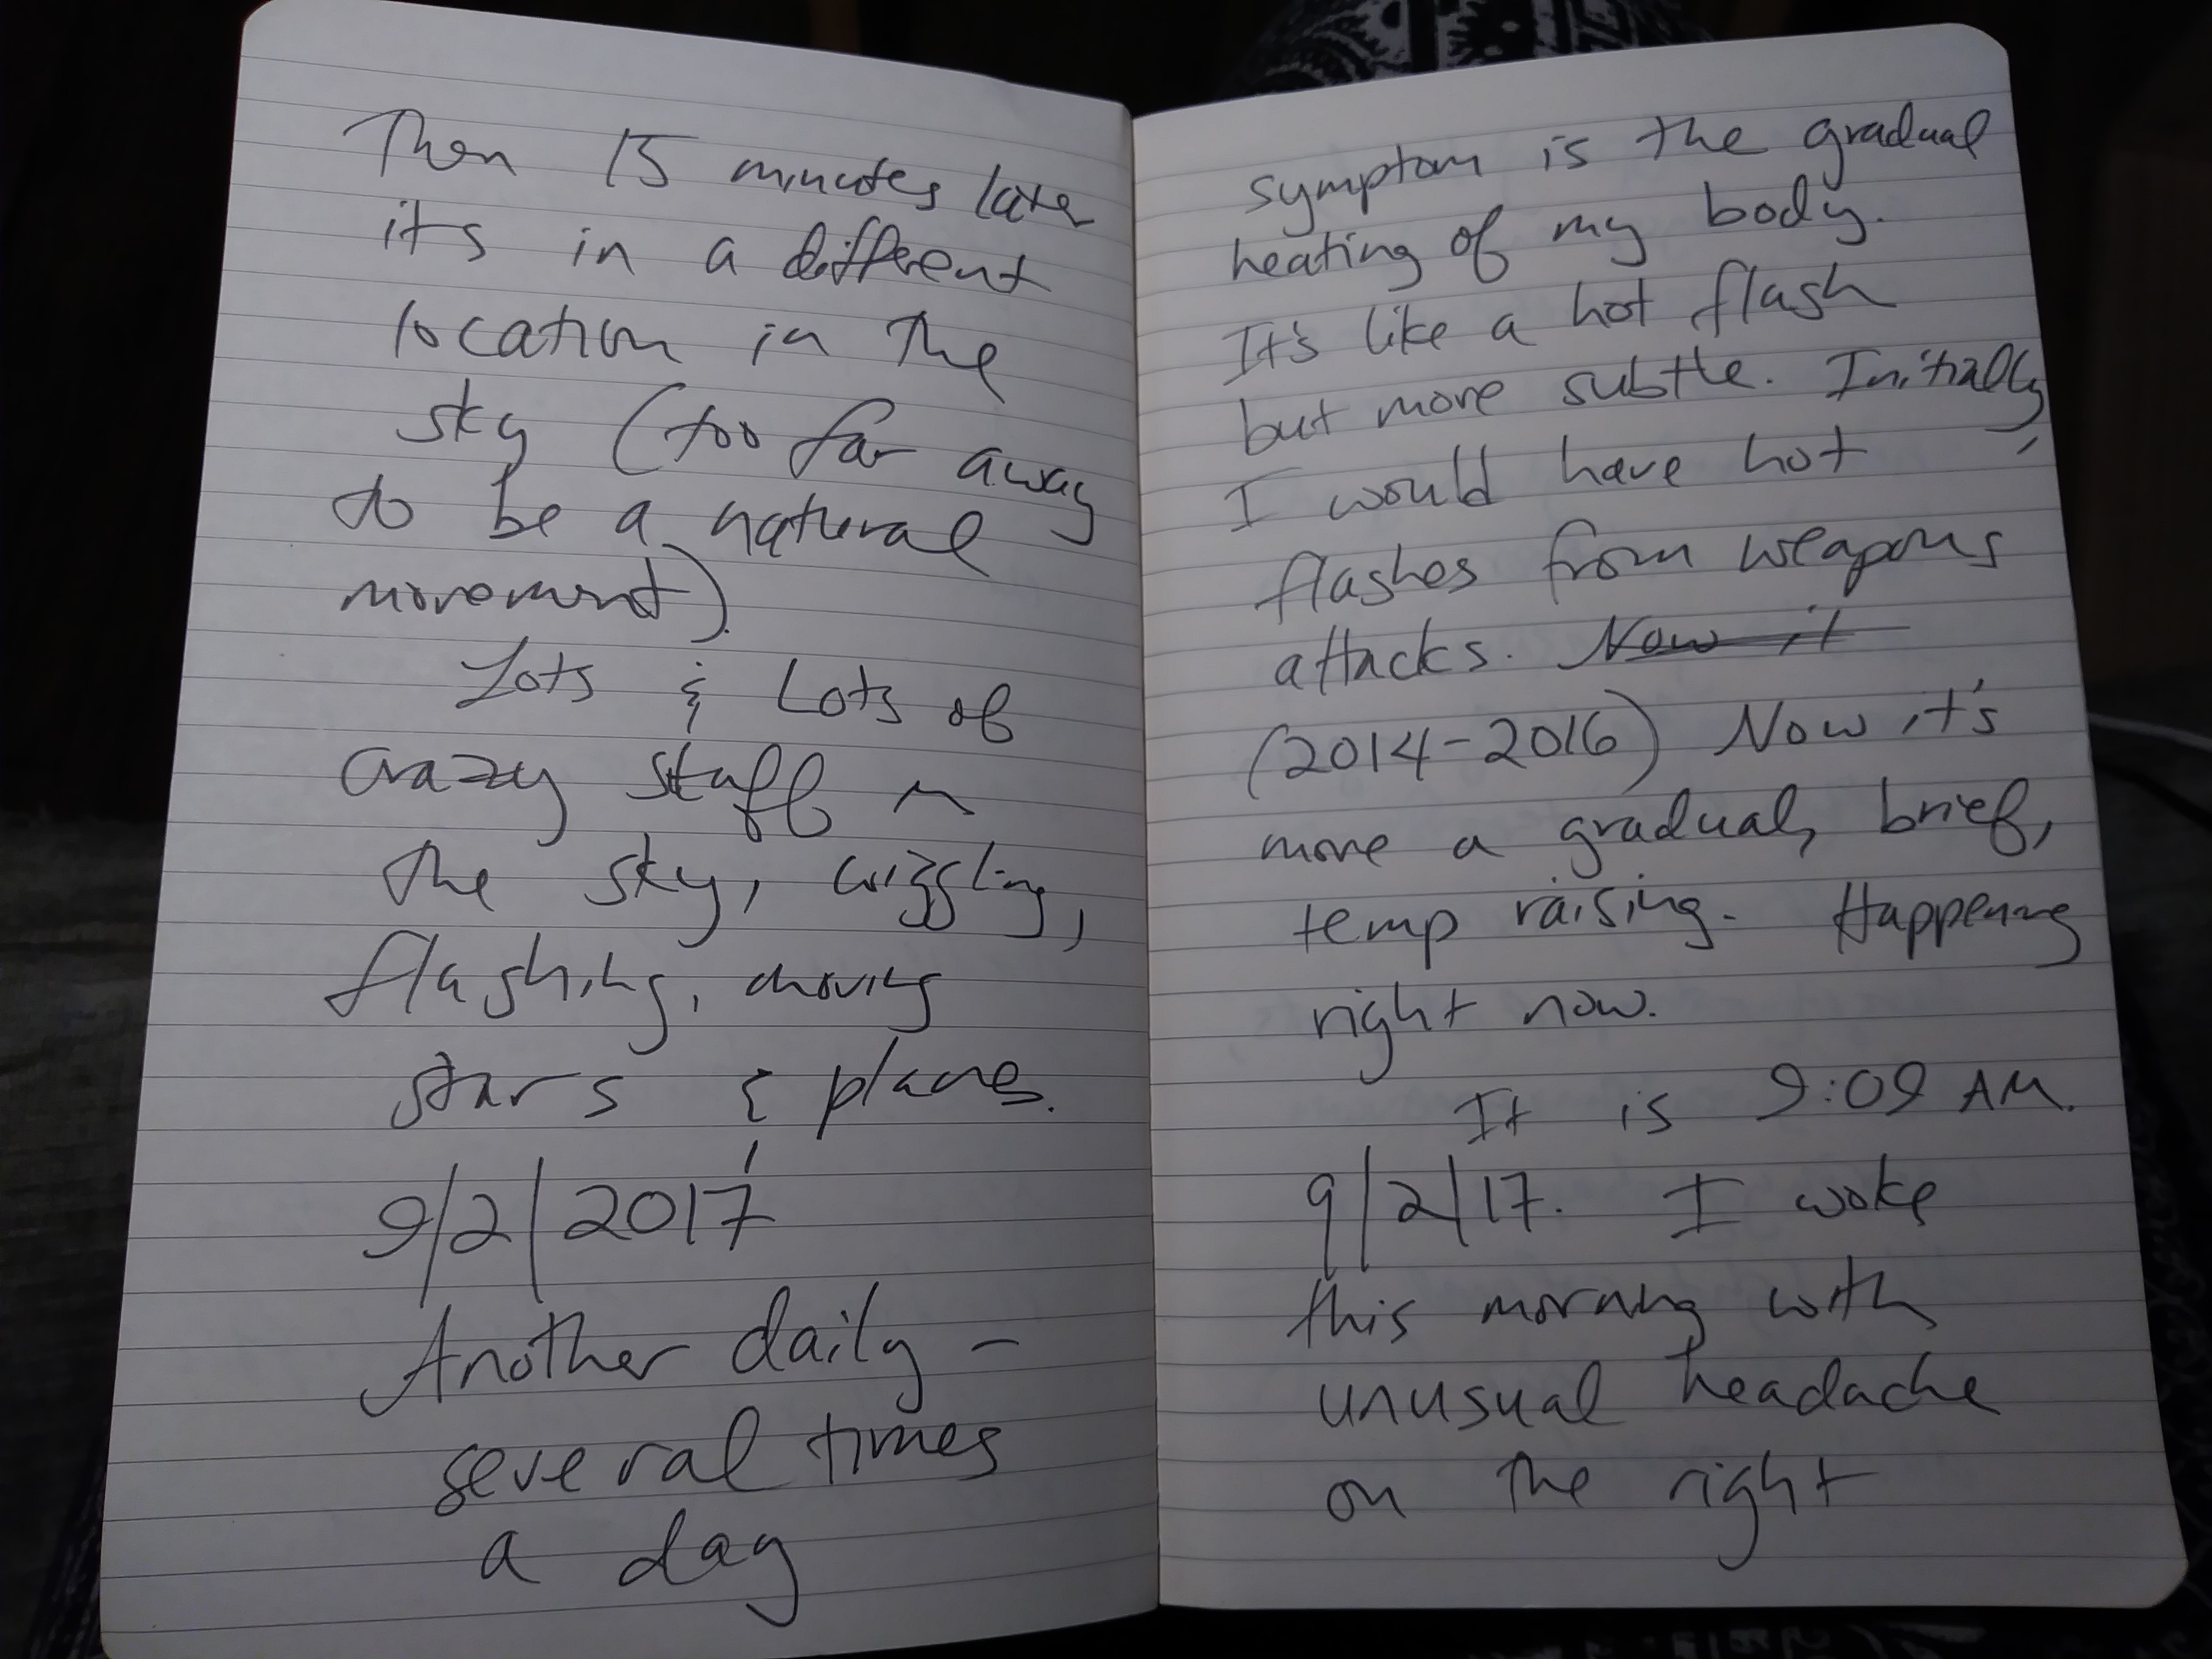 Then 15 minutes later
its in a different
location in the
sky (too far away
to be a natural
movement).
Lots & Lots of
crazy stuff in
the sky, wiggling,
flashing, moving
stars & planes.
9/2/2017
Another daily -
several times
a day
symptom is the gradual
heating of my body.
It's like a hot flash
but more subtle. Initially,
I would have hot
flashes from weapons
attacks. Now it
(2014-2016) Now it's
more a gradual, brief,
temp raising. Happening
right now.
It is 9:09 AM.
9/2/17. I woke
this morning with
unusual headache
on the right